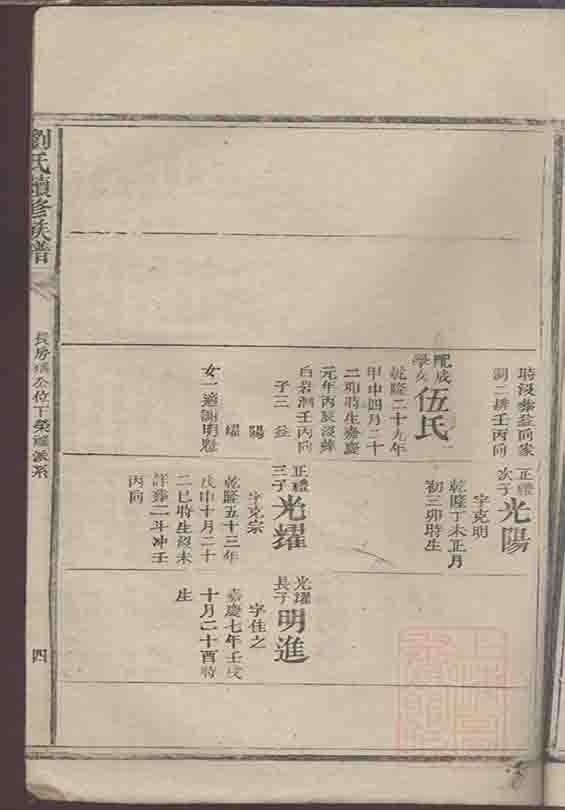 時沒葬益同家
洞二排壬丙向
配成學女伍氏
乾隆二十九年
甲申四月二十
二卯時生嘉慶
元年丙辰沒葬
白岩洞壬丙向
子三 益
陽
耀
女一適謝明魁
正禮次子光陽
字克明
乾隆丁未正月
初三卯時生
正禮三子光耀
字克宗
乾隆五十三年
戊申十月二十
二巳時生沒未
詳葬二斗冲壬
丙向
光耀長子明進
字佳之
嘉慶七年壬戌
十月二十酉時
生
劉氏續修族譜
長房 公位下榮 派系
四